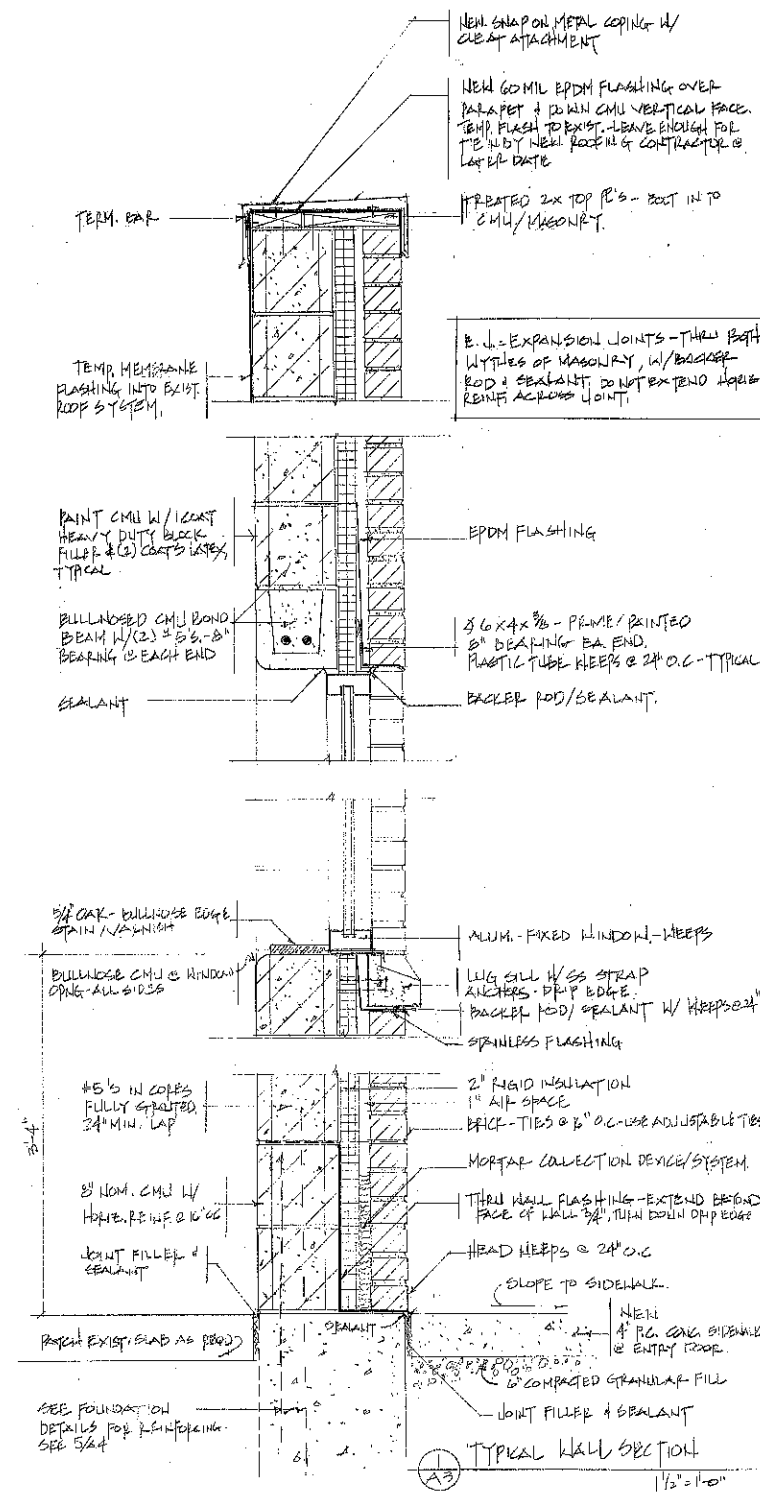 NEW SNAP ON METAL COPING W/
CLEAT ATTACHMENT
NEW 60 MIL EPDM FLASHING OVER
PARAPET & DOWN CMU VERTICAL FACE.
TEMP. FLASH TO EXIST. - LEAVE ENOUGH FOR
TIE IN BY NEW ROOFING CONTRACTOR @
LATER DATE
TERM. BAR
TREATED 2X TOP PL'S - BOLT INTO
CMU/MASONRY.
E.J. = EXPANSION JOINTS - THRU BOTH
WYTHES OF MASONRY, W/BACKER
ROD & SEALANT. DO NOT EXTEND HORIZ
REINF. ACROSS JOINT.
TEMP. MEMBRANE
FLASHING INTO EXIST.
ROOF SYSTEM.
PAINT CMU W/ 1 COAT
HEAVY DUTY BLOCK
FILLER & (2) COATS LATEX,
TYPICAL
EPDM FLASHING
BULLNOSED CMU BOND
BEAM W/(2) #5'S. - 8"
BEARING @ EACH END
6x4x3/8 - PRIME/PAINTED
8" BEARING EA. END.
PLASTIC TUBE WEEPS @ 24" O.C. - TYPICAL
SEALANT
BACKER ROD/SEALANT.
5/4" OAK - BULLNOSE EDGE
STAIN/VARNISH
ALUM. - FIXED WINDOW. - WEEPS
BULLNOSE CMU @ WINDOW
OPNG - ALL SIDES
LUG SILL W/SS STRAP
ANCHORS - DRIP EDGE.
BACKER ROD/SEALANT W/ WEEPS @ 24"
STAINLESS FLASHING
#5'S IN CORES
FULLY GROUTED
24" MIN. LAP
3'-4"
2" RIGID INSULATION
1" AIR SPACE
BRICK - TIES @ O.C. - USE ADJUSTABLE TIES
MORTAR COLLECTION DEVICE/SYSTEM.
8" NOM. CMU W/
HORIZ. REINF. @ 16" OC
THRU WALL FLASHING - EXTEND BEYOND
FACE OF WALL 3/4", TURN DOWN DRIP EDGE
JOINT FILLER &
SEALANT
HEAD WEEPS @ 24" O.C
SLOPE TO SIDEWALK.
PATCH EXIST. SLAB AS REQ'D
SEALANT
NEW
4" P.C. CONC. SIDEWALK
@ ENTRY DOOR.
6" COMPACTED GRANULAR FILL
SEE FOUNDATION
DETAILS FOR REINFORCING.
SEE 5/A4
JOINT FILLER & SEALANT
1
A3
TYPICAL WALL SECTION
1 1/2" = 1'-0"